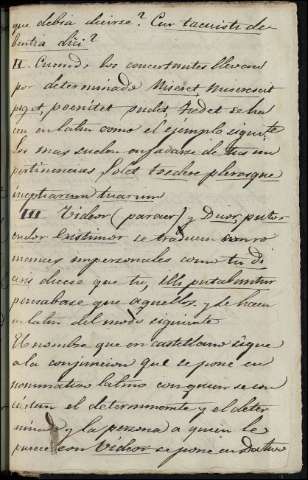 que debia decirse? Cur tacuisti de
bentia dici?
II. Cuando los concertantes llevan
por determinado Miseret, Miserescit
piget, poenitet pudet, tædet se ha
cen en latin como el ejemplo siguiente
los mas suelen enfadarse de tus im
pertinencias Solet tædere plerosque
ineptiarum tuarum
III Videor (parecer) y Duor, putor
credor Existimor se traducen con ro
mances impersonales como tu di
ceris dicese que tu, illi putabantur
pensabase que aquellos y se hacen
en latin del modo siguiente
El nombre que en castellano sigue
a la conjuncion que se pone en
nominativo latino con quien se con
ciertan el determinante y el deter
minado y la persona a quien le
parece con Videor se pone en dativo